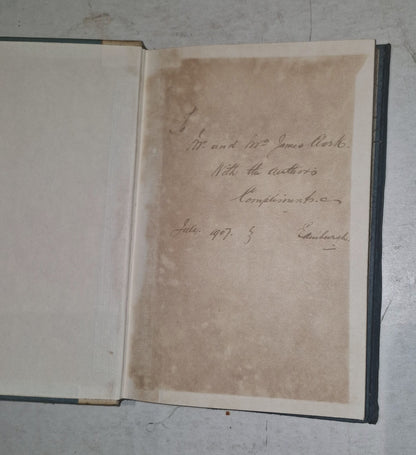 To
Mr. and Mrs James
With the authors
Compliments.
July. 1907. Edinburgh.